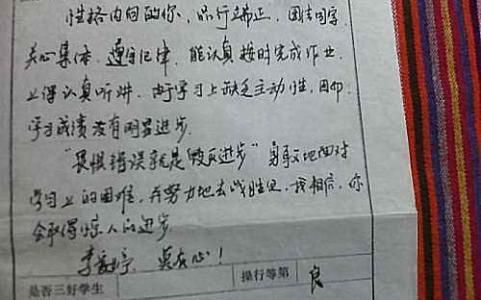 性格内向的你，品行端正，团结同学
关心集体，遵守纪律，能认真按时完成作业
上课认真听讲，由于学习上缺乏主动性，因而
学习成绩没有明显进步
"畏惧错误就是毁灭进步"勇敢地面对
学习上的困难，并努力地去战胜它，我相信，你
会取得惊人的进步
李 贵在心！
是否三好学生 操行等第 良